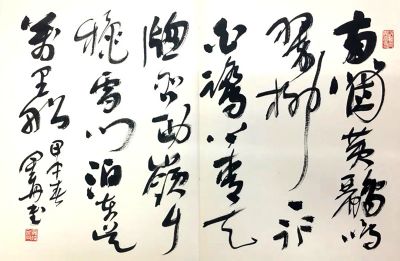 兩個黃鸝鳴
翠柳一行
白鷺上青天
窗含西嶺千
秋雪門泊東吳
萬里船